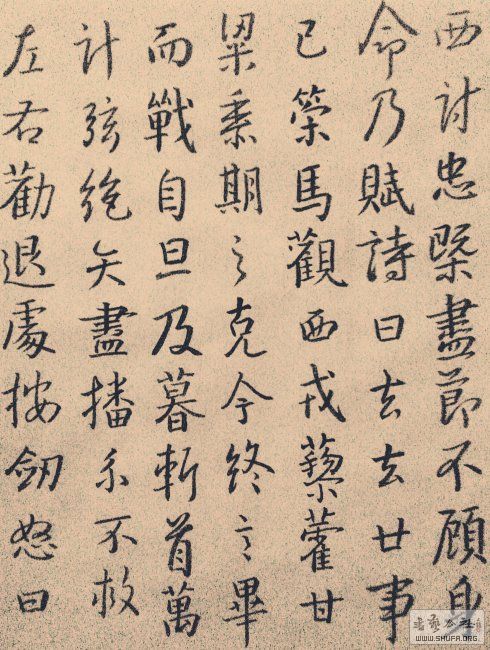 西討忠槩盡節不顧身
命乃賦詩曰去去廿事
已策馬觀西戎藜藿甘
粱黍期之克令終言畢
而戰自旦及暮斬首萬
計弦絕矢盡播系不救
左右勸退處按劒怒曰
WWW.SHUFA.ORG